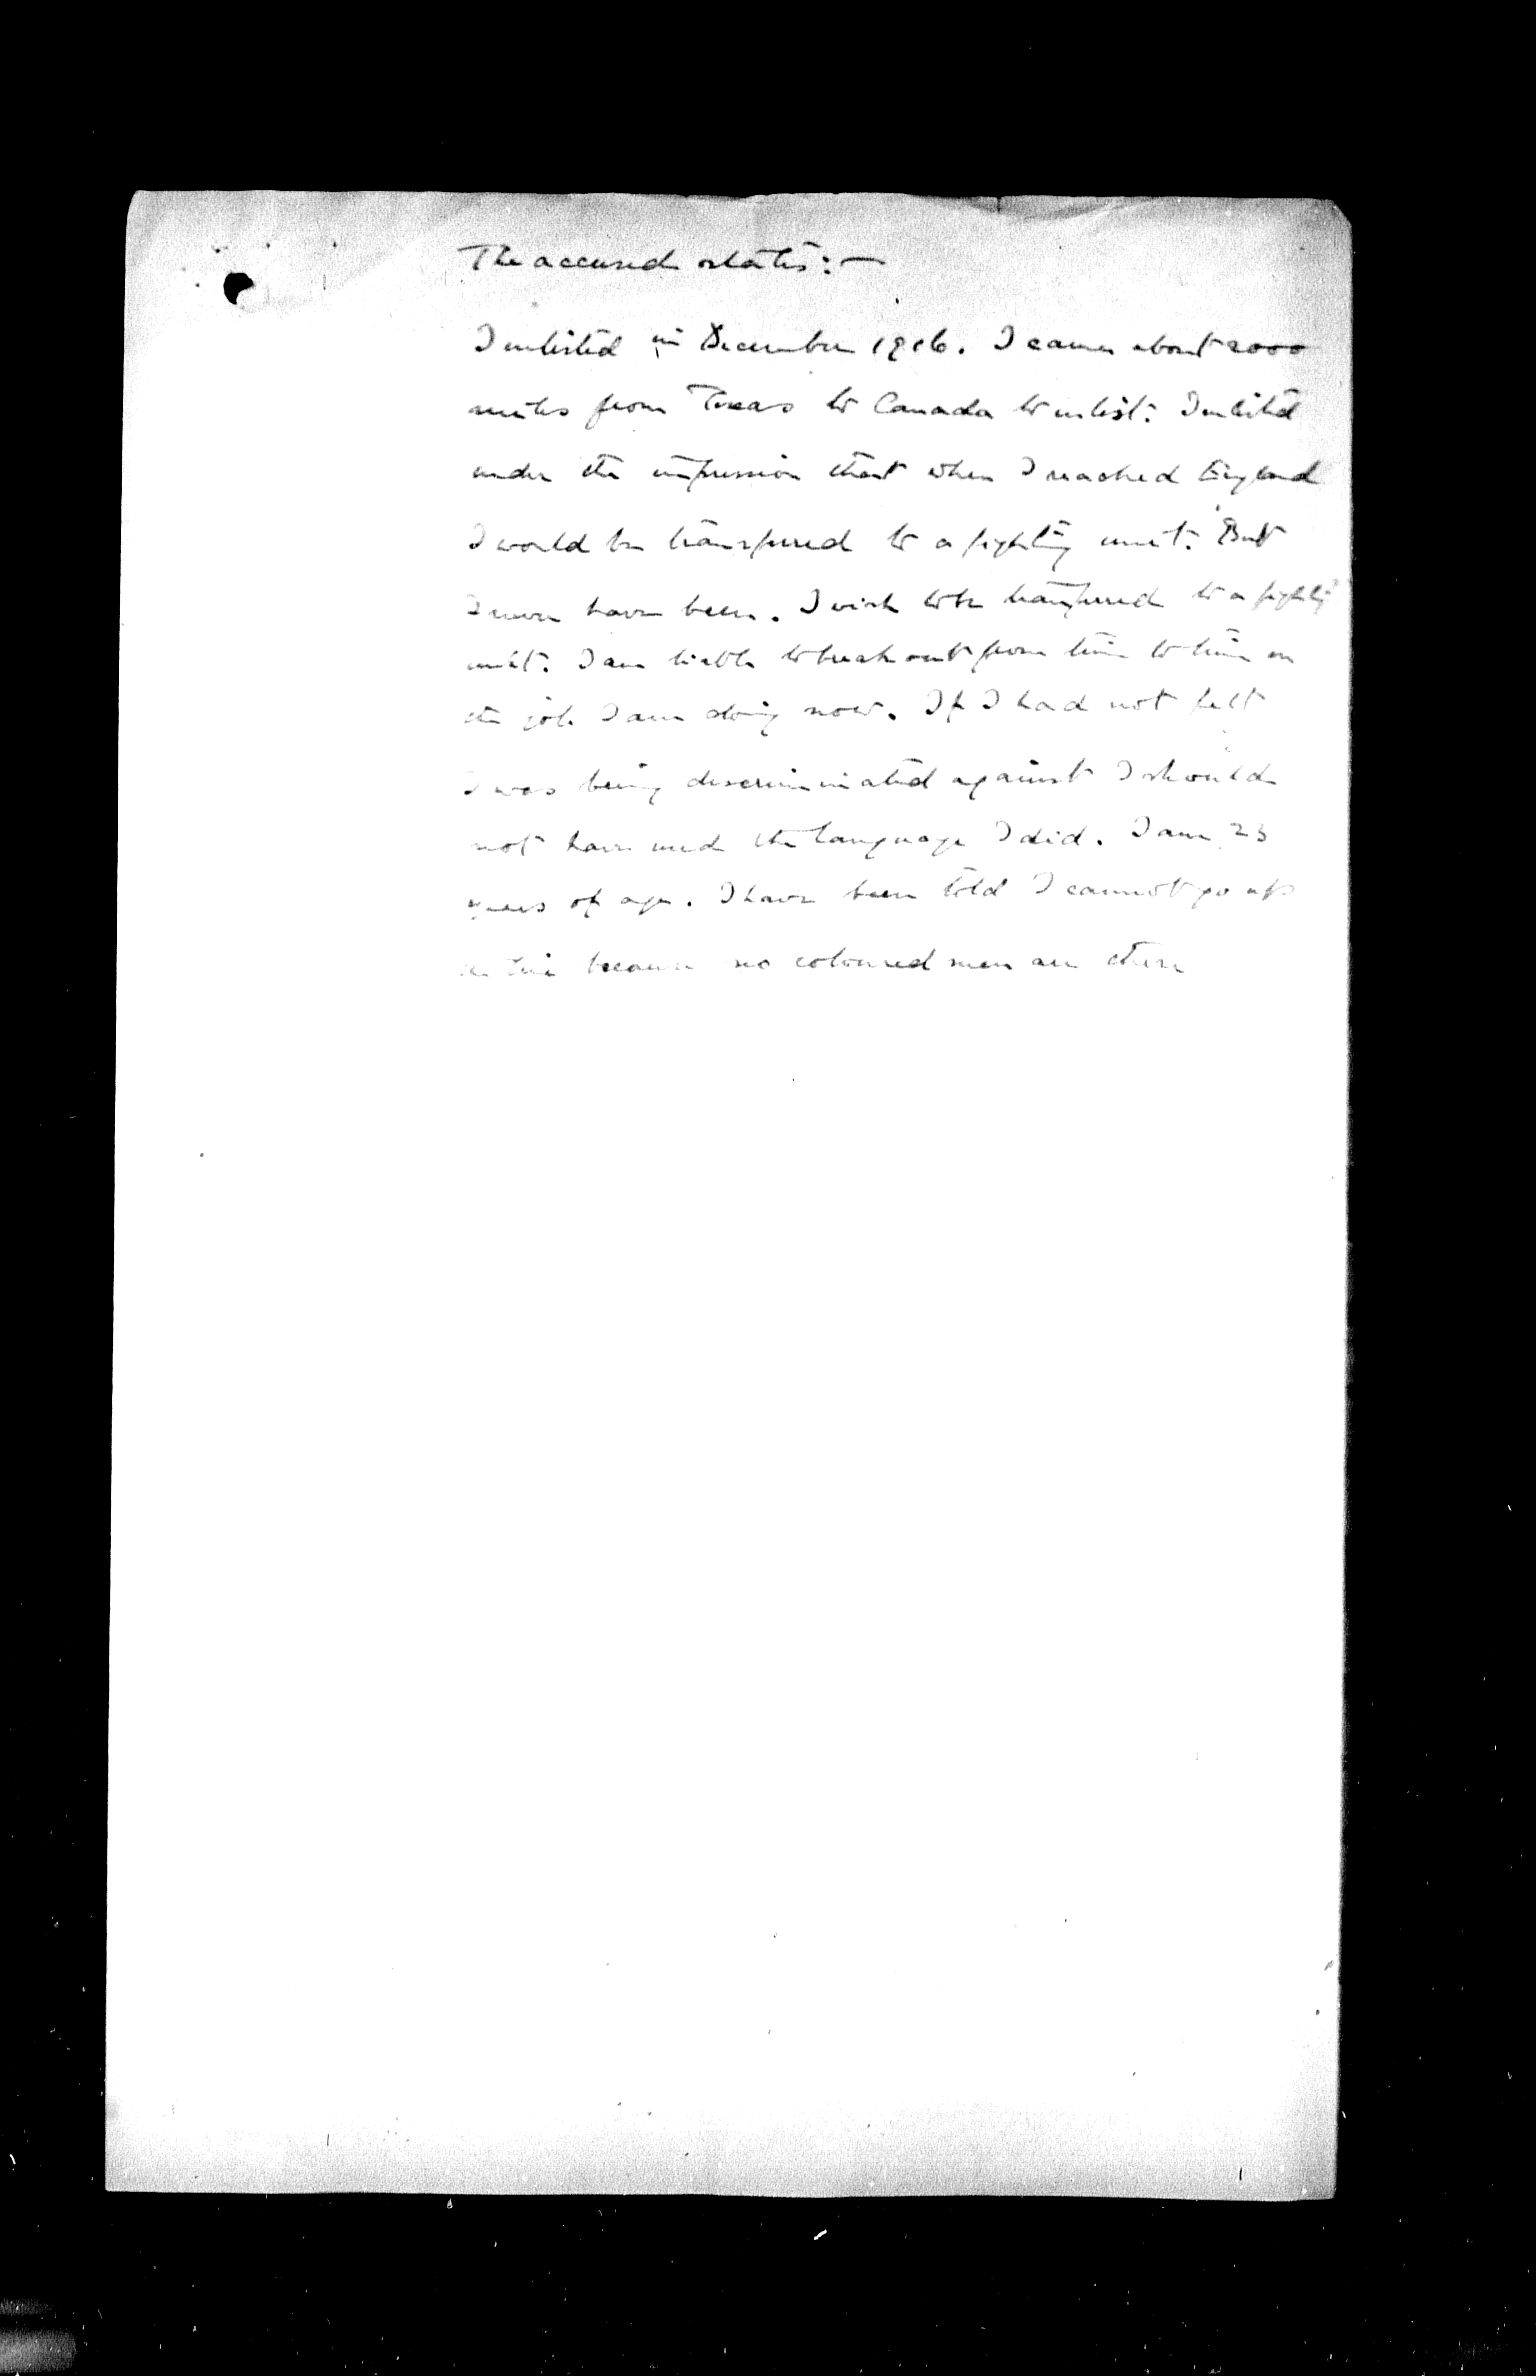 The accused states:—
I enlisted in December 1916. I came about 2000
miles from Texas to Canada to enlist. I enlisted
under the impression that when I reached England
I would be transferred to a fighting unit. But
I never have been. I wish to be transferred to a fighting
unit. I am liable to break out from time to time on
the job I am doing now. If I had not felt
I was being discriminated against I should
not have used the language I did. I am 23
years of age. I have been told I cannot go up
the line because no coloured men are there